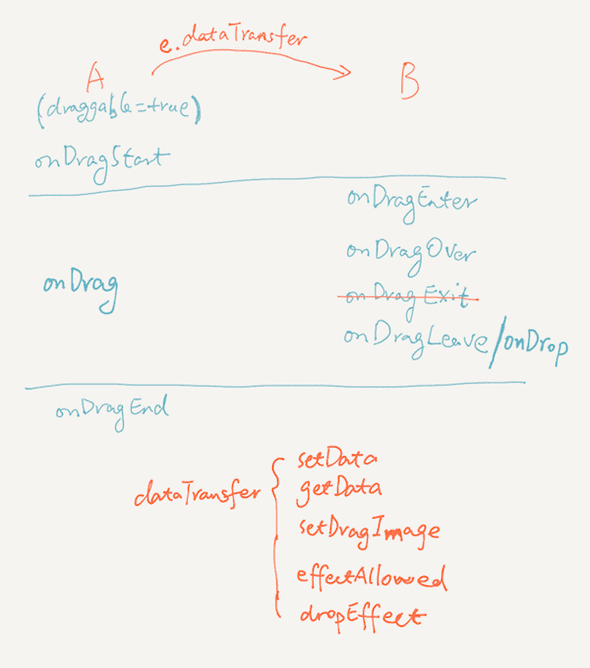 e.dataTransfer
A
B
(draggable=true)
onDragStart
onDragEnter
onDragOver
onDrag
onDragExit
onDragLeave/onDrop
onDragEnd
dataTransfer
setData
getData
setDragImage
effectAllowed
dropEffect